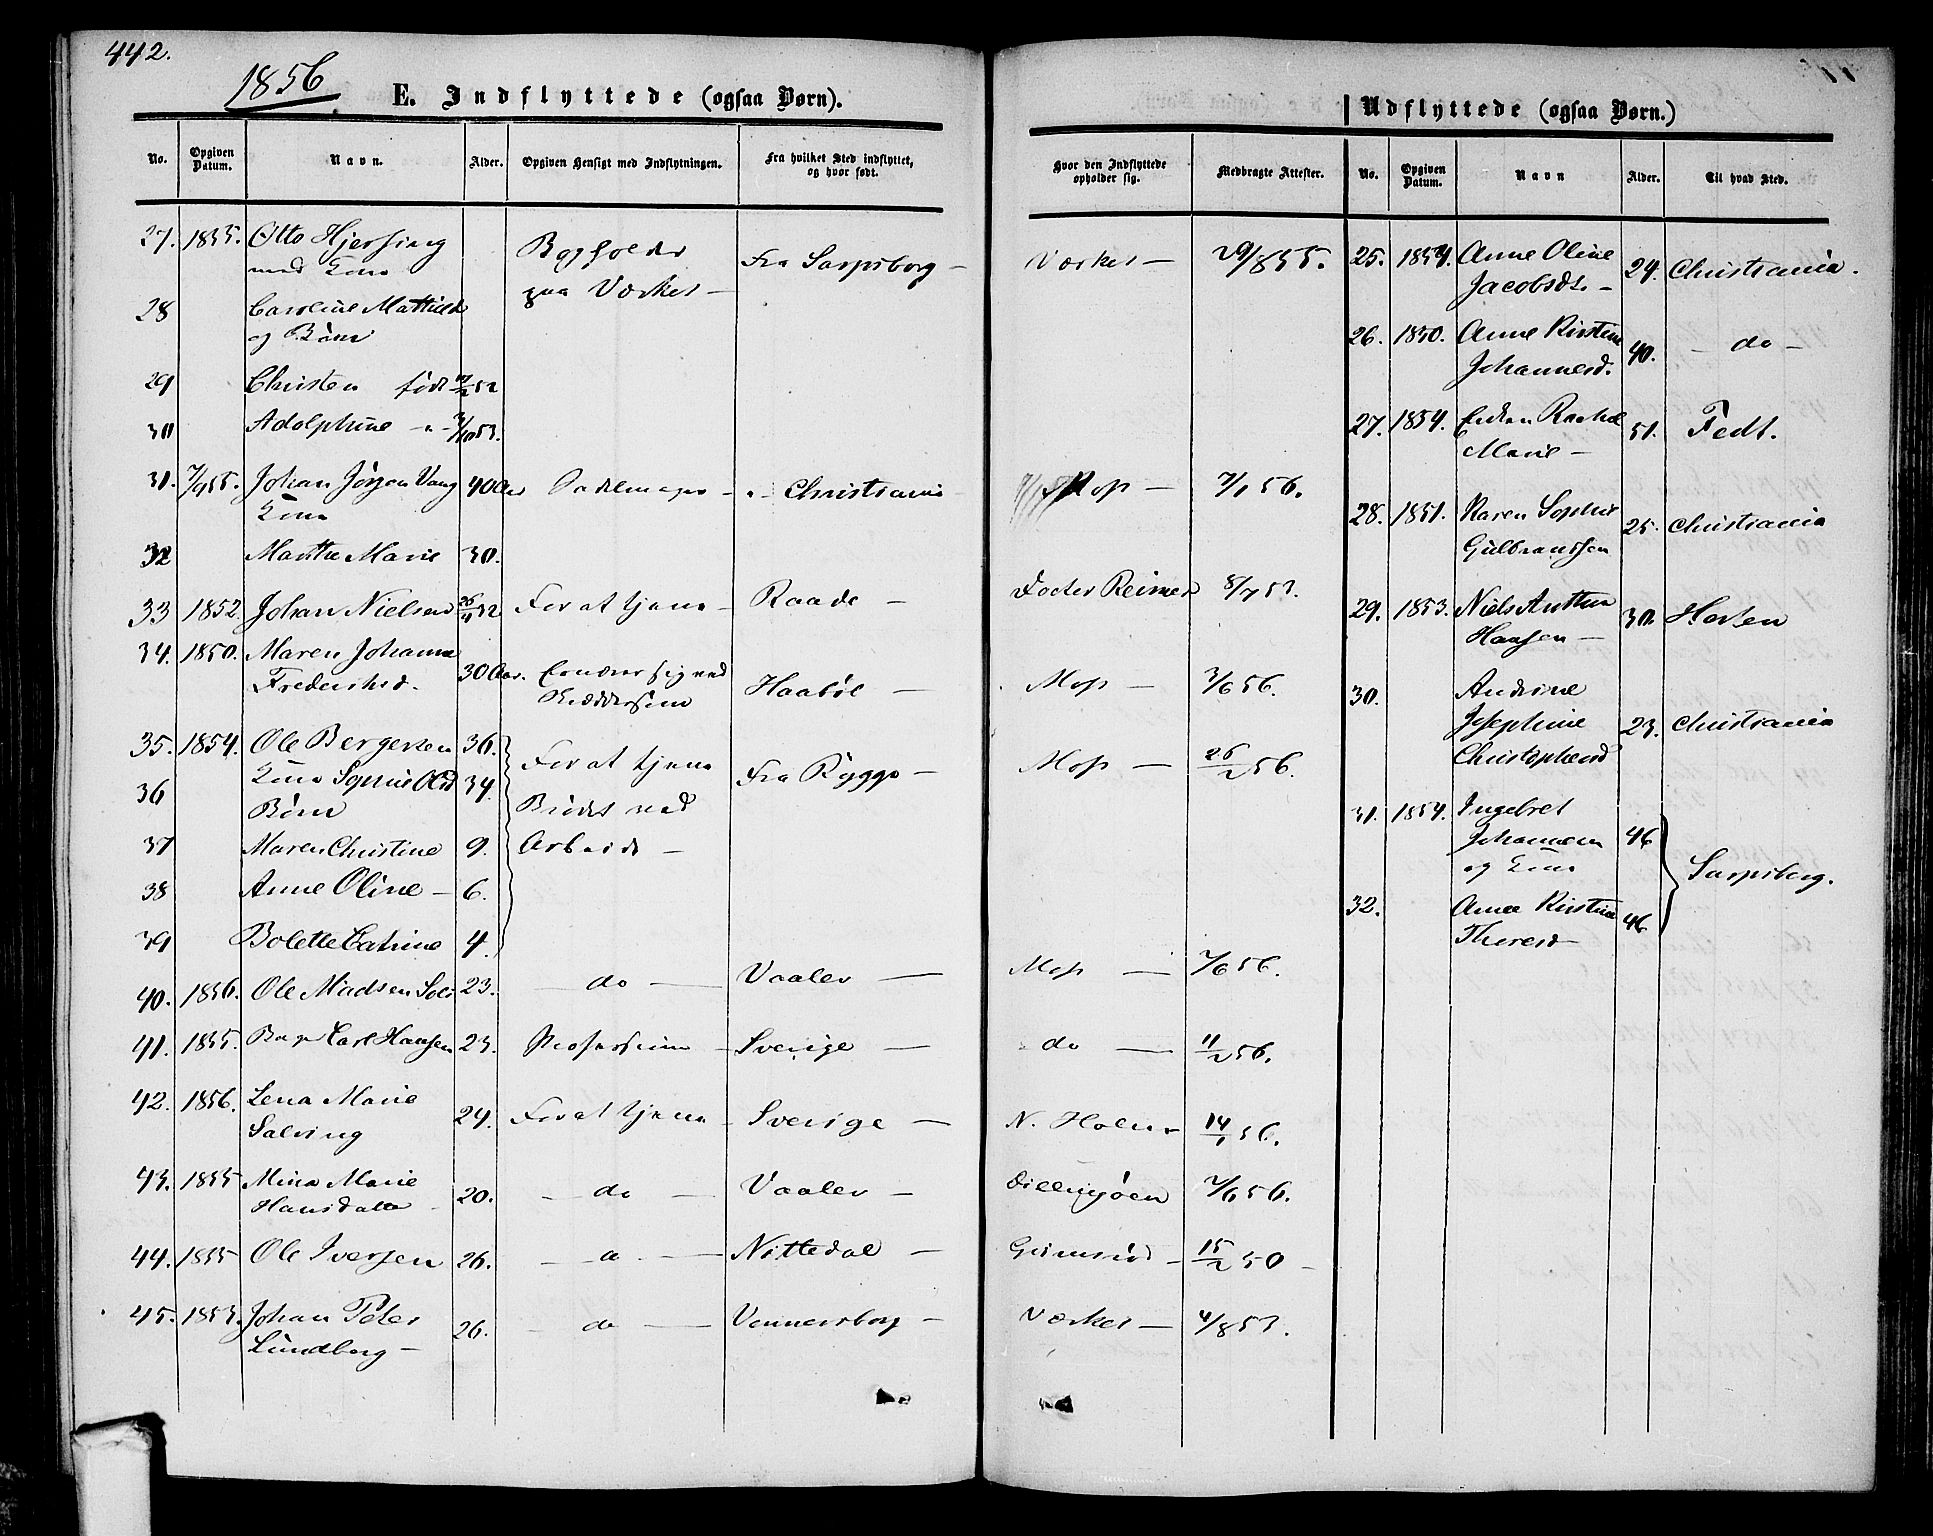 442.
1856
E. Indflyttede (ogsaa Børn).
No. | Opgiven Datum. | Navn. | Alder. | Opgiven Hensigt med Indflytningen. | Fra hvilket Sted indflyttet, og hvor født. | Hvor den Indflyttede opholder sig. | Medbragte Attester.
27. 1855. Otto Hjersing
med Kone
Bogholder
paa Værket —
Fra Sarpsborg —
Værket —
29/8 55.
28 Caroline Mathilde
og Børn
29 Christen født 52
30 Adolphine - " - 3/10 53.
31. 7/9 55. Johan Jørgen Vang 40 Aar Sadelmager - " Christiania - Mos — 7/1 56.
Kone
32 Marthe Marie 30.
33 1852. Johan Nielsen 26/11 32 For at tjene - Raade — Docter Reimer 8/7 53.
34. 1850. Maren Johanne
Frederiksd. 30 Aar. Ernærer sig ved
Haabøl — Mos — 3/6 56.
35. 1854. Ole Bergersen 36. For at tjene
36 Kone Sophie Olsd 34. Fra Rygge — Mos — 26/2 56.
Børn
Brødet ved
37 Maren Christine 9. Arbeide —
38 Anne Oline — 6.
39 Bolette Catrine 4.
40. 1856. Ole Madsen 23. — do — Vaaler — Mos — 7/6 56.
41. 1855. Carl Hansen 23. Profession - Sverige — do — 11/2 56.
42. 1856. Lena Marie
Salving 24. For at tjene - Sverige — N. Holm - 14/1 56.
43. 1855 Mina Marie
Hansdatter 20. — do — Vaaler — Dillingøen 7/6 56.
44. 1855 Ole Iversen 26. — do — Nittedal — 15/2 50 -
45. 1853. Johan Peter
Lundberg — 26. — do — Vennersborg — Værket — 4/8 53.
Udflyttede (ogsaa Børn.)
No. | Opgiven Datum. | Navn | Alder. | Til hvad Sted.
25. 1854. Anne Oline
Jacobsdt. — 24. Christiania.
26. 1850. Anne Kirstine
Johannesd. 40. — do —
27. 1854. Enken Rachel
Marie — 51. Fedt.
28. 1851. Karen Sophie
Gulbranssen 25. Christiania
29. 1853. Niels Anthon
Hansen — 30. Horten
30. Andrine
Josephine 23. Christiania
Christophersd
31. 1854. Ingebret
Johannesen 46
og Kone
Sarpsborg.
32. Anne Kirstine
Thoresd — 46